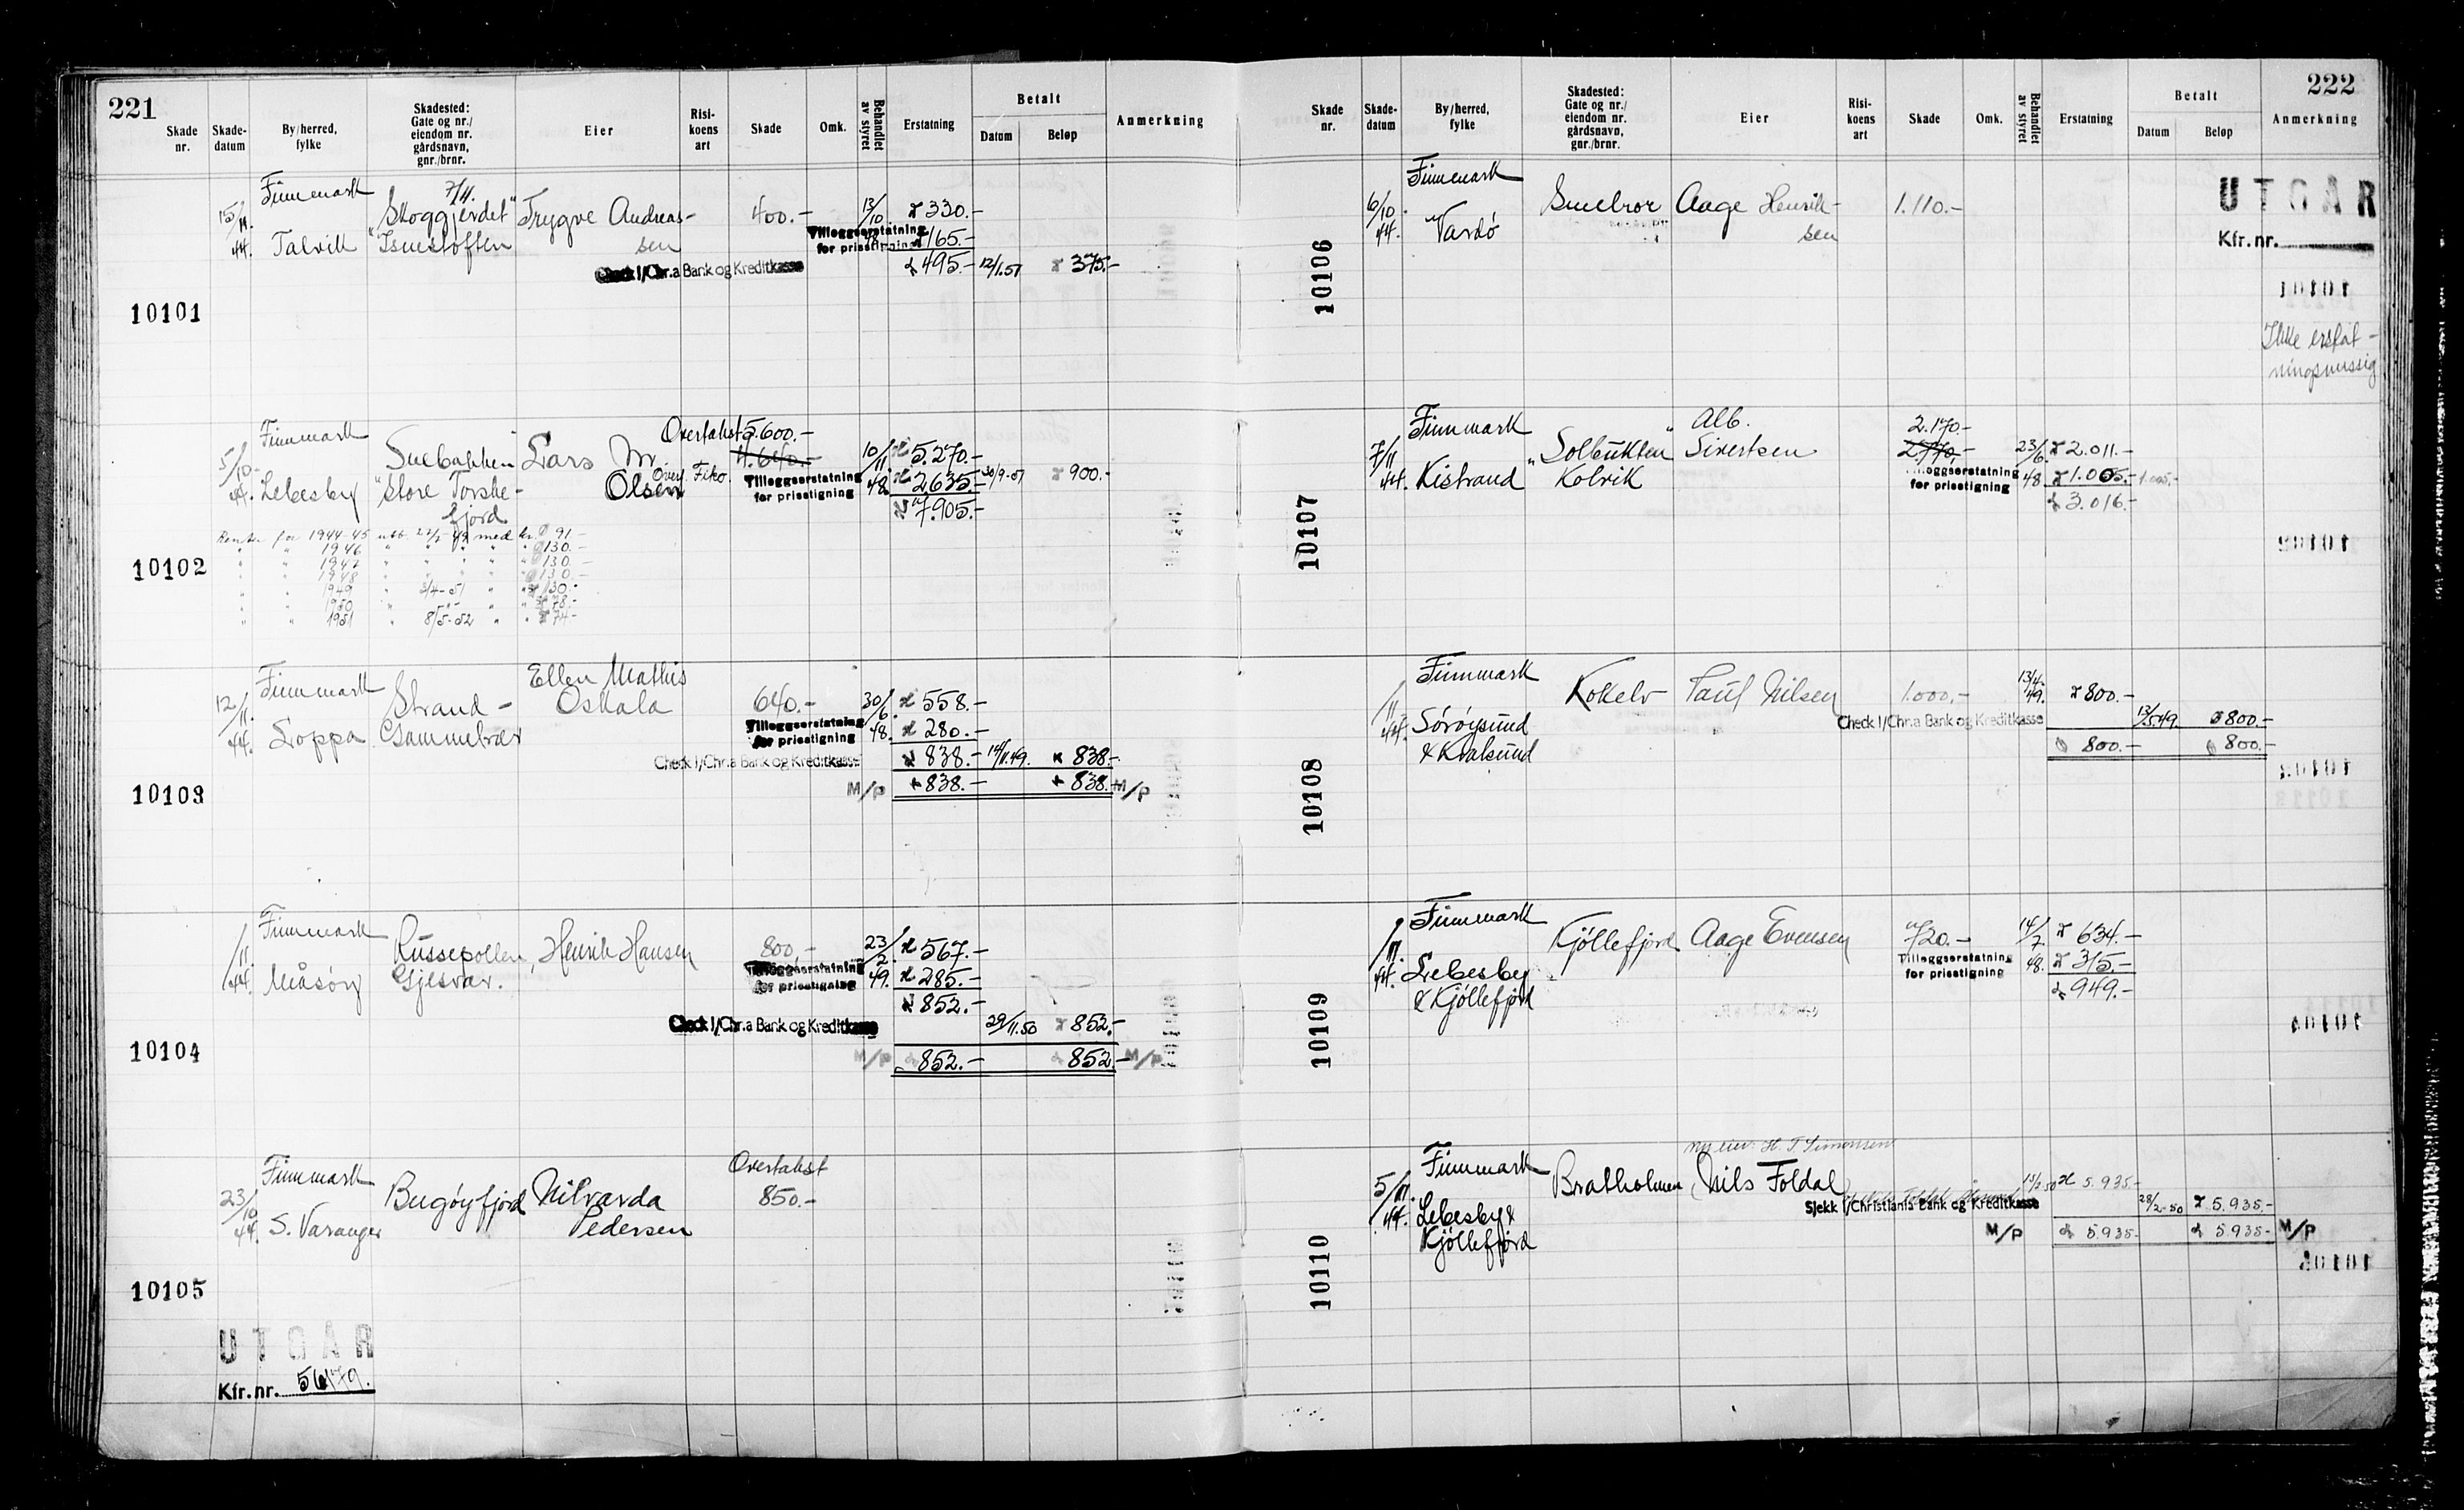 221
Skade nr.
Skade-datum
By/herred, fylke
Skadested: Gate og nr./ eiendom nr. gårdsnavn, gnr./brnr.
Eier
Risi-koens art
Skade
Omk.
Behandlet av styret
Erstatning
Betalt
Datum
Beløp
Anmerkning
10101
Finnmark 7/11.
15/11. "Skoggjerdet" Trygve Andreas- 400.- 13/10 330.-
44. Talvik sen Tilleggserstatning for prisstigning 165.-
Check I/Chr.a Bank og Kreditkasse 495.- 12/1.51 375.-
10102
Finnmark Overtakst 5.600.-
5/10- Lars M. 4.640.- 10/11 5.270.-
44. Lebesby "Store Torske- Olsen Tilleggserstatning for prisstigning 48. 2.635.- 900.-
fjord 7.905.-
Renter for 1944-45 utb. med kr. 91-
" " 1946 " " " " 130.-
" " 1947 " " " " 130.-
" " 1948 " " " " 130.-
" " 1949 " 3/4-51 " " 130.-
" " 1950 " " " " 78.-
" " 1951 " 8/5-52 " " 74-
10103
Finnmark Ellen Mathis
12/11. Strand- Oskala 640.- 30/6. 558.-
44. Loppa Gammelvær Tilleggserstatning for prisstigning 48. 280.-
Check I/Chr.a Bank og Kreditkasse 838.- 14/11.49. 838.-
M/P 838.- 838.- M/P
10104
Finnmark
/11. Russepollen, Henrik Hansen 800,- 23/2. 567.-
44. Måsöy Gjesvær. Tilleggserstatning for prisstigning 49. 285.-
852.-
Check I/Chr.a Bank og Kreditkasse 29/11.50 852.-
M/P 852.- 852.- M/P
10105
Finnmark Overtakst
23/10 Bugöyfjord Nilvarda 850.-
44. S. Varanger Pedersen
UTGÅR
Kfr. nr.
222
Skade nr.
Skade-datum
By/herred, fylke
Skadested: Gate og nr./ eiendom nr. gårdsnavn, gnr./brnr.
Eier
Risi-koens art
Skade
Omk.
Behandlet av styret
Erstatning
Betalt
Datum
Beløp
Anmerkning
10106
Finnmark
6/10. Aage Henrik- 1.110.-
44. Vardö sen
UTGÅR
Kfr. nr.
Ikke erstat-
ningsmessig
10107
Finnmark Alb. 2.170-
7/11 "Solbukten" Sivertsen 23/6 2.011.-
44. Kistrand Kolvik Tilleggserstatning for prisstigning 48 1.005.- 1.005.-
3.016.-
10108
Finnmark
/11. Kokelv Paul Nilsen 1.000.- 13/4. 49. 800.-
44. Söröysund Check I/Chr.a Bank og Kreditkasse 13/5 49. 800.-
& Kvalsund 800.- 800.-
10109
Finnmark
/11. Kjöllefjord Aage Evensen 720.- 14/7. 634.-
44. Lebesby Tilleggserstatning for prisstigning 48. 315.-
& Kjöllefjord 949.-
10110
Finnmark Ny eier: H. T. Simonsen
5/11. Bratholmen, Nils Foldal 5.935.-
44. Lebesby & Sjekk I/Christiania Bank og Kreditkasse 28/2-50 5.935.-
Kjöllefjord M/P 5.935- 5.935- M/P